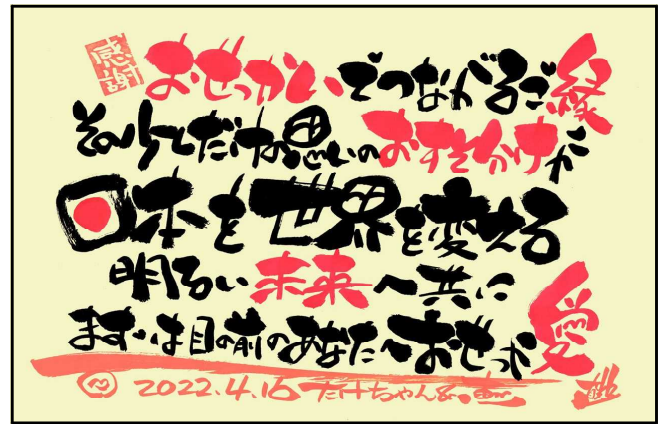 感謝
おせっかいでつながるご縁
その少しだけの思いのおすそわけが
日本を世界を変える
明るい未来へ共に
まずは目の前のあなたへおせっ火愛
2022.4.16 たけちゃん&恵